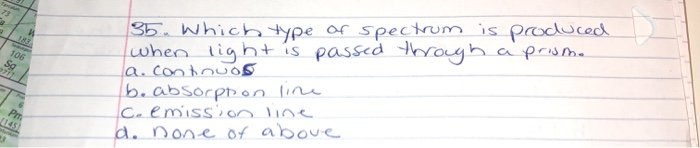 35. Which type of spectrum is produced
when light is passed through a prism.
a. continuos
b. absorption line
c. emission line
d. none of above
106
Sg
Pm